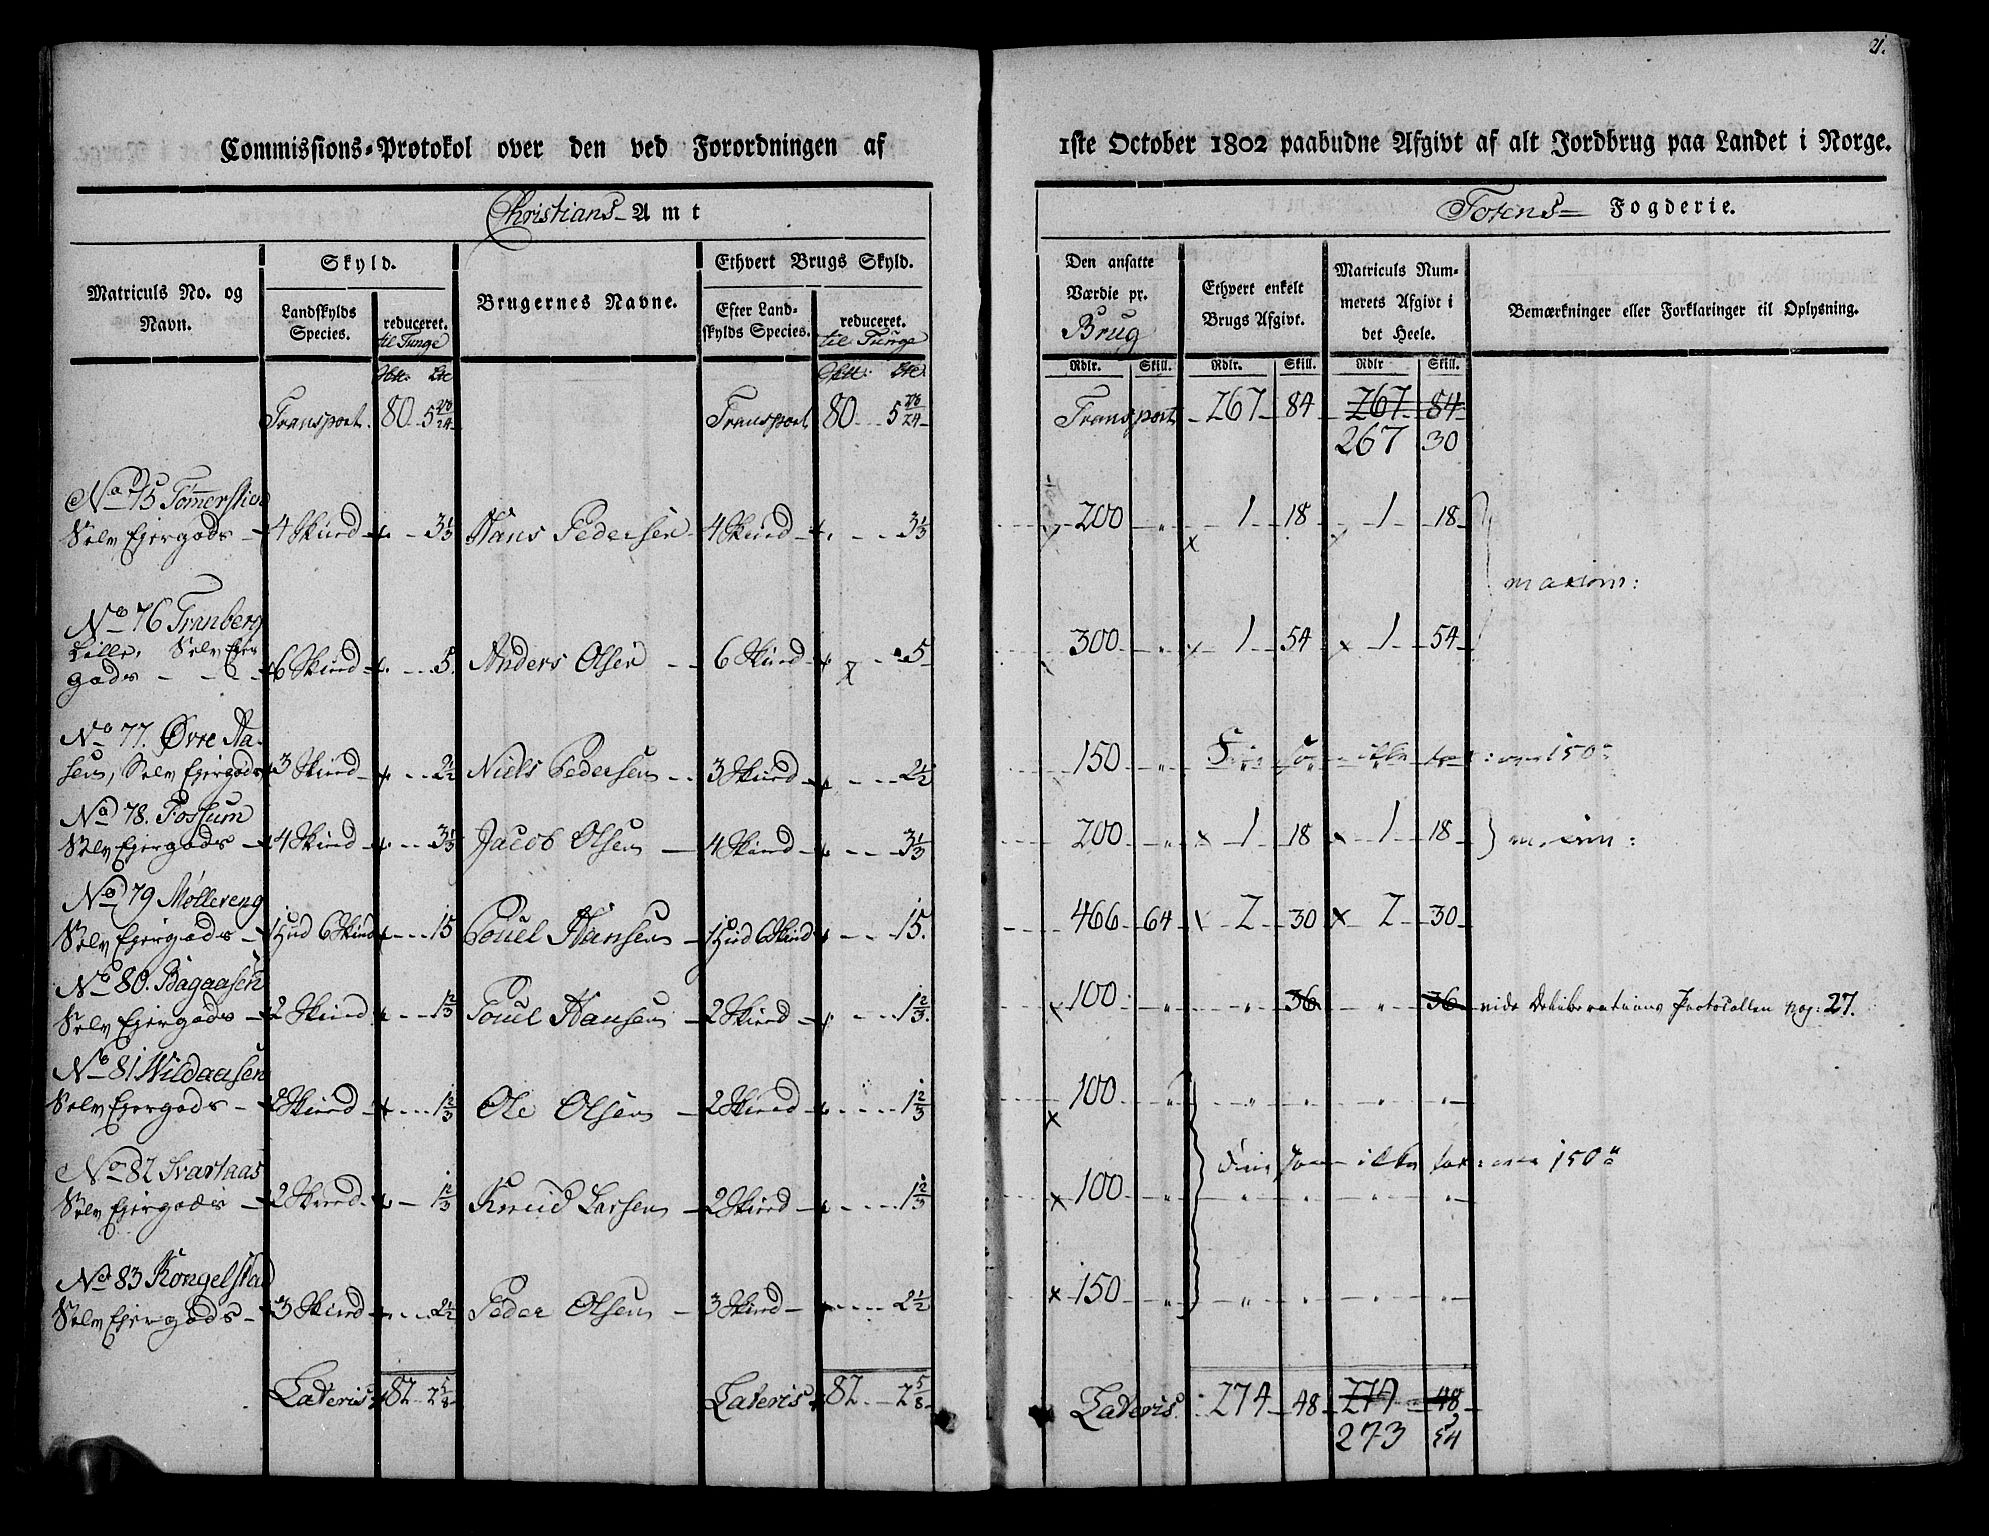 21.
Commissions-Protokol over den ved Forordningen af 1ste October 1802 paabudne Afgivt af alt Jordbrug paa Landet i Norge.
Christians- Amt
Totens= Fogderie.
Matriculs No. og Navn.
Skyld.
Landskylds Species.
reduceret.
til Tunge
Brugernes Navne.
Ethvert Brugs Skyld.
Efter Landskylds Species.
reduceret.
til Tunge
Den ansatte Værdie pr. Brug
Ethvert enkelt Brugs Afgivt.
Matriculs Nummerets Afgivt i det Heele.
Bemærkninger eller Forklaringer til Oplysning.
Rdlr. Skill. Rdlr. Skill. Rdlr Skill.
Transport. 80 5 20/24 Transport 80 5 20/24 Transport 267 84 267 84
267 30
No 75
Selv Ejergods 4 Skind 3 1/3 Hans Pedersen 4 Skind 3 1/3 200 1 18 1 18
maxim:
No 76 Tranberg
Lille, Selv Ejer
gods 6 Skind 5. Anders Olsen 6 Skind 5 300 1 54 1 54
No 77. Øvre Aa-
sen, Selv Ejergods 3 Skind 2 1/2 Niels Pedersen 3 Skind 2 1/2 150 150
No 78. Fossum
Selv Ejergods 4 Skind 3 1/3 Jacob Olsen 4 Skind 3 1/3 200 1 18 1 18
No 79 Møllereng
Selv Ejergods 1 Hud 6 Skind 15 Pouel Hansen 1 Hud 6 Skind 15. 466 64 2 30 2 30
No 80. Bagaasen
Selv Ejergods 2 Skind 1 2/3 Pouel Hansen 2 Skind 1 2/3. 100 36 36 vide Deliberations Protocollen pag: 27.
No 81 Wildaasen
Selv Ejergods 2 Skind 1 2/3 Ole Olsen 2 Skind 1 2/3 100
No 82 Svartaas
Selv Ejergods 2 Skind 1 2/3 Knud Larsen 2 Skind 1 2/3 100 150
No 83 Kongelstad
Selv Ejergods 3 Skind 2 1/2 Peder Olsen 3 Skind 2 1/2 150
Lateris 82 2 5/8 Lateris 82 2 5/8 Lateris. 274 48 274 48
273 54